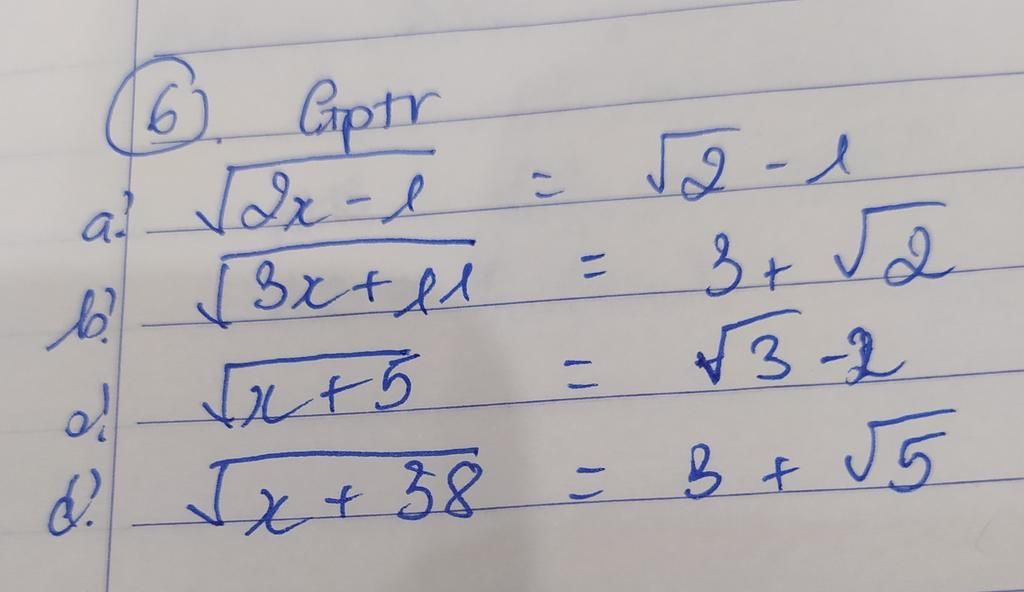 6). Gptr
a! √(2x - 1) = √2 - 1
b! √(3x + 11) = 3 + √2
c! √(x + 5) = √3 - 2
d! √(x + 38) = 3 + √5